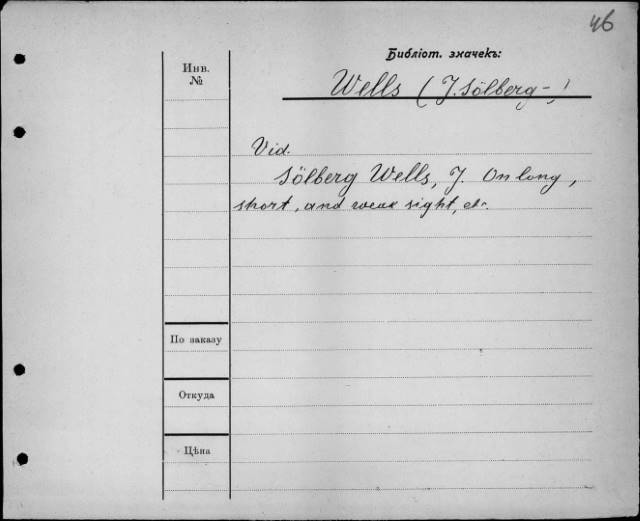 46
Библіот. значекъ:
Инв.
№
Wells (J. Sölberg-)
Vid.
Sölberg Wells, J. On long,
short, and weak sight, etc.
По заказу
Откуда
Цѣна